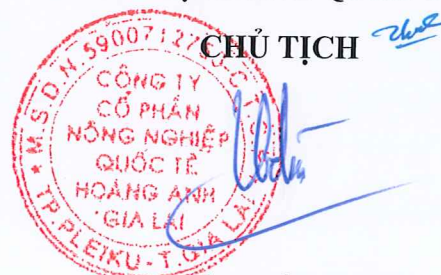 CHỦ TỊCH
M.S.D.N 59007127
CÔNG TY
CỔ PHẦN
NÔNG NGHIỆP
QUỐC TẾ
HOÀNG ANH
GIA LAI
TP.PLEIKU - T.GIA LAI